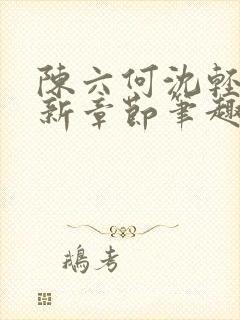 陳六何沈輕
新章節筆趣
鵝考